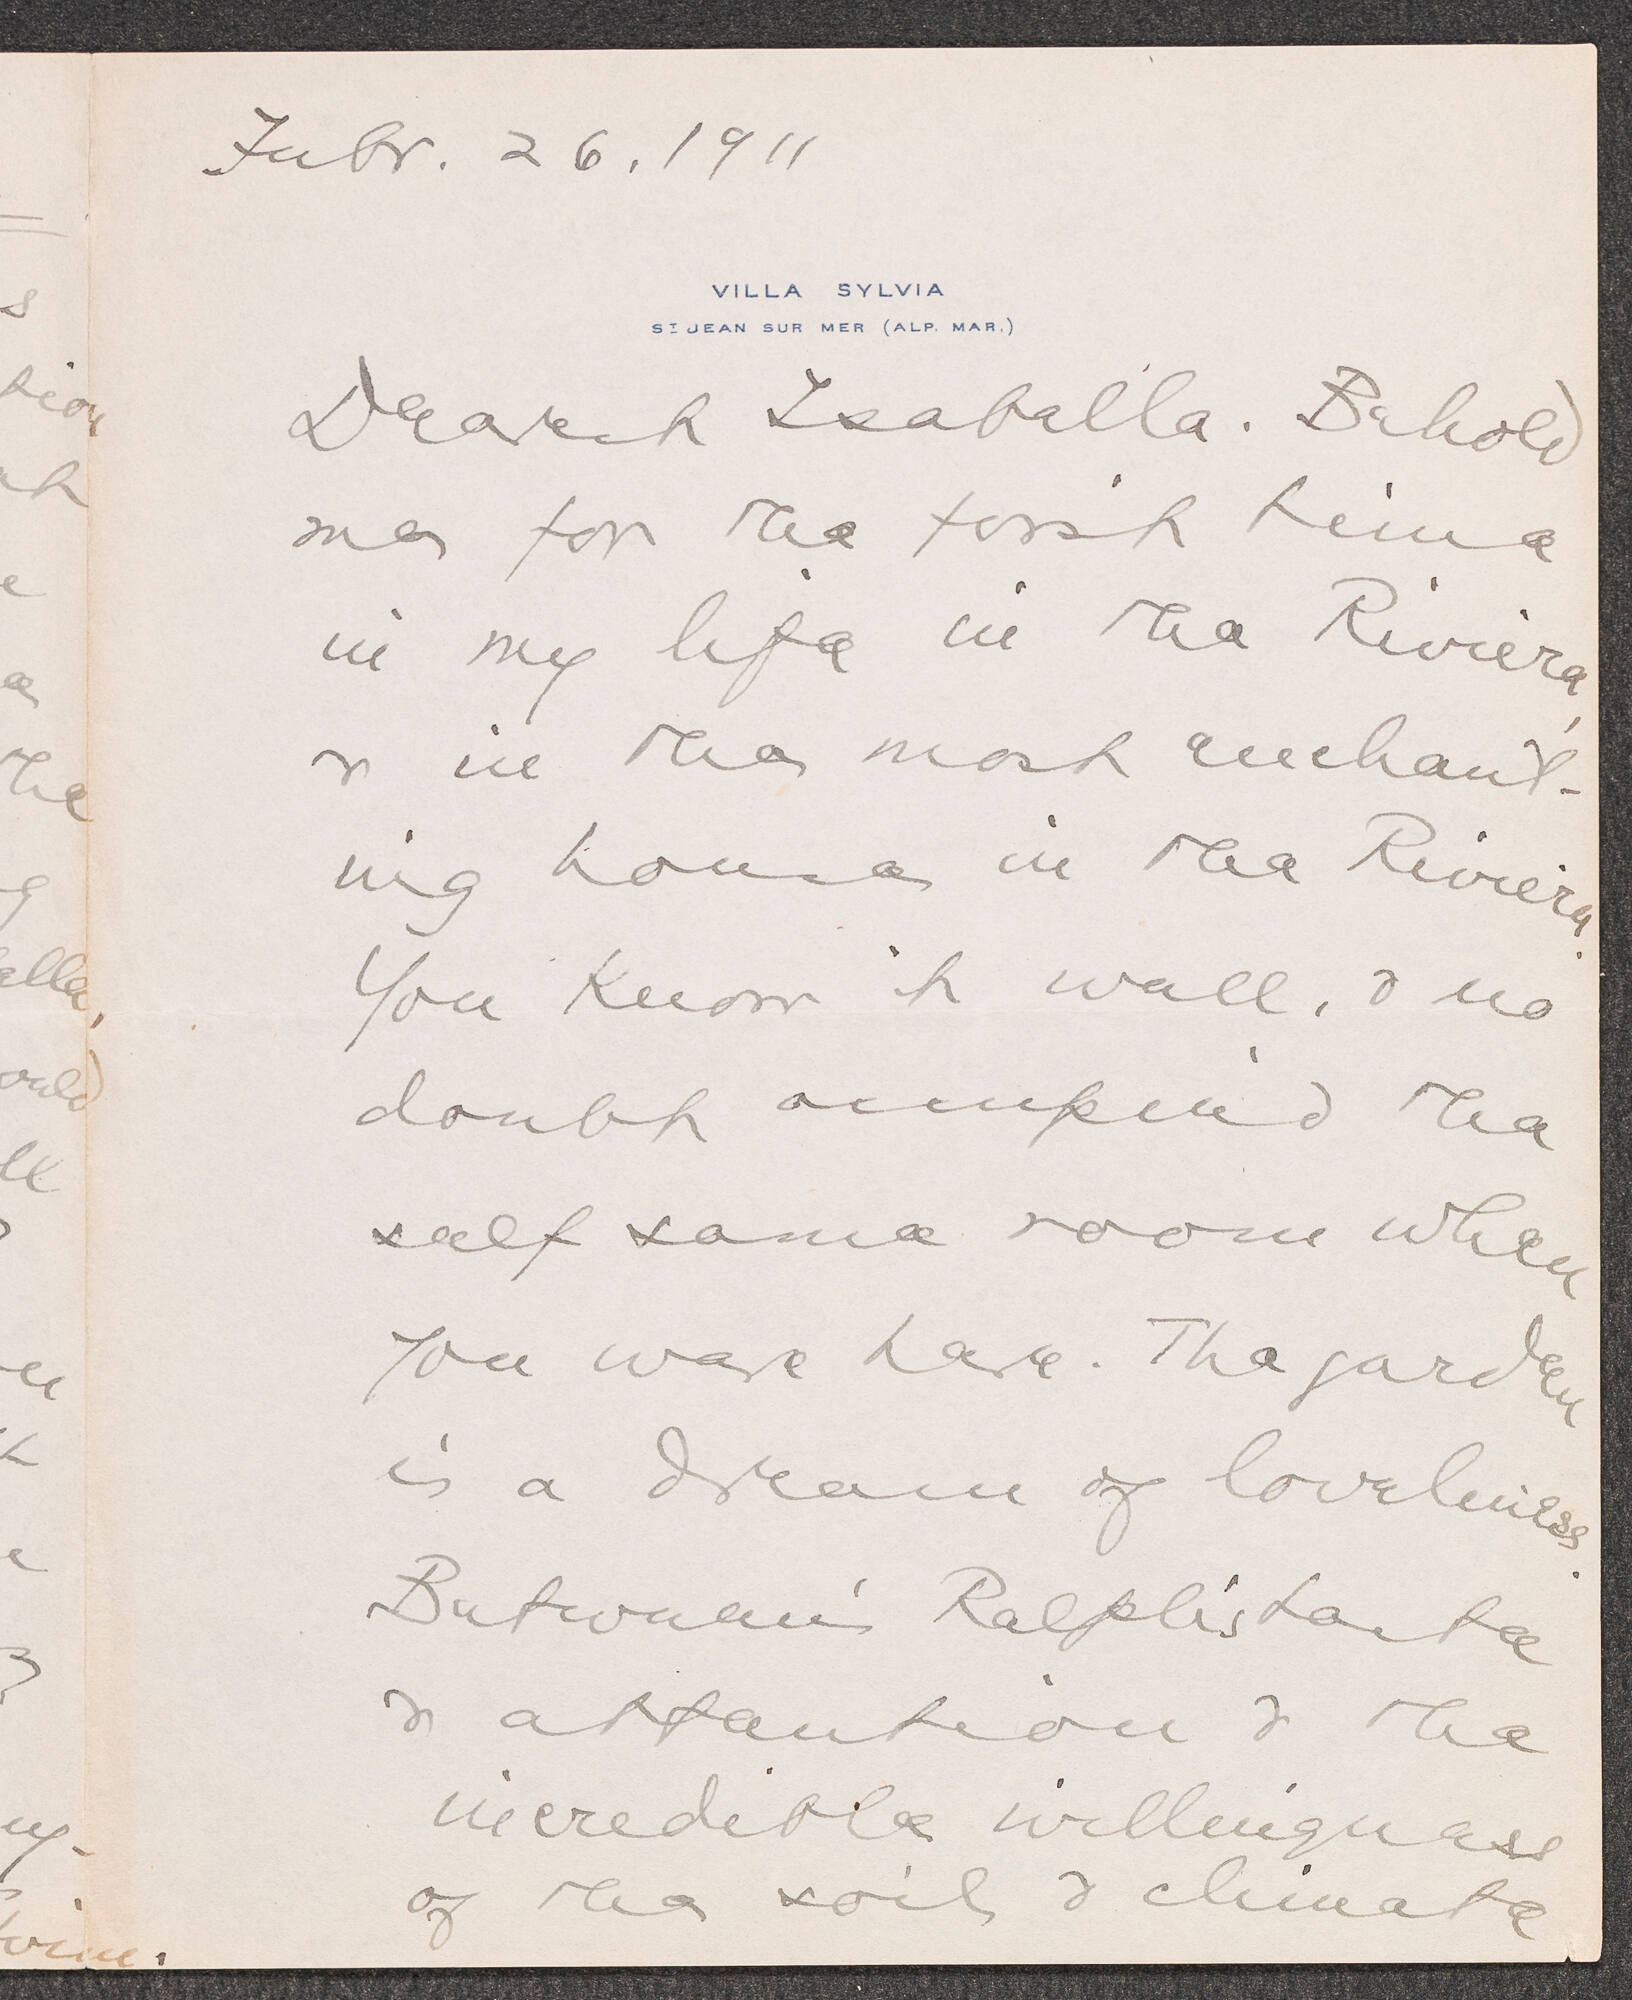 Febr. 26, 1911
VILLA SYLVIA
ST JEAN SUR MER (ALP. MAR.)
Dearest Isabella. Behold
me for the first time
in my life in the Riviera,
& in the most enchant-
ing house in the Riviera.
You know it well, & no
doubt occupied the
self same room when
you were here. The garden
is a dream of loveliness.
Between Ralph's taste
& attention & the
incredible willingness
of the soil & climate
s
tion
e
the
g
ella,
ould